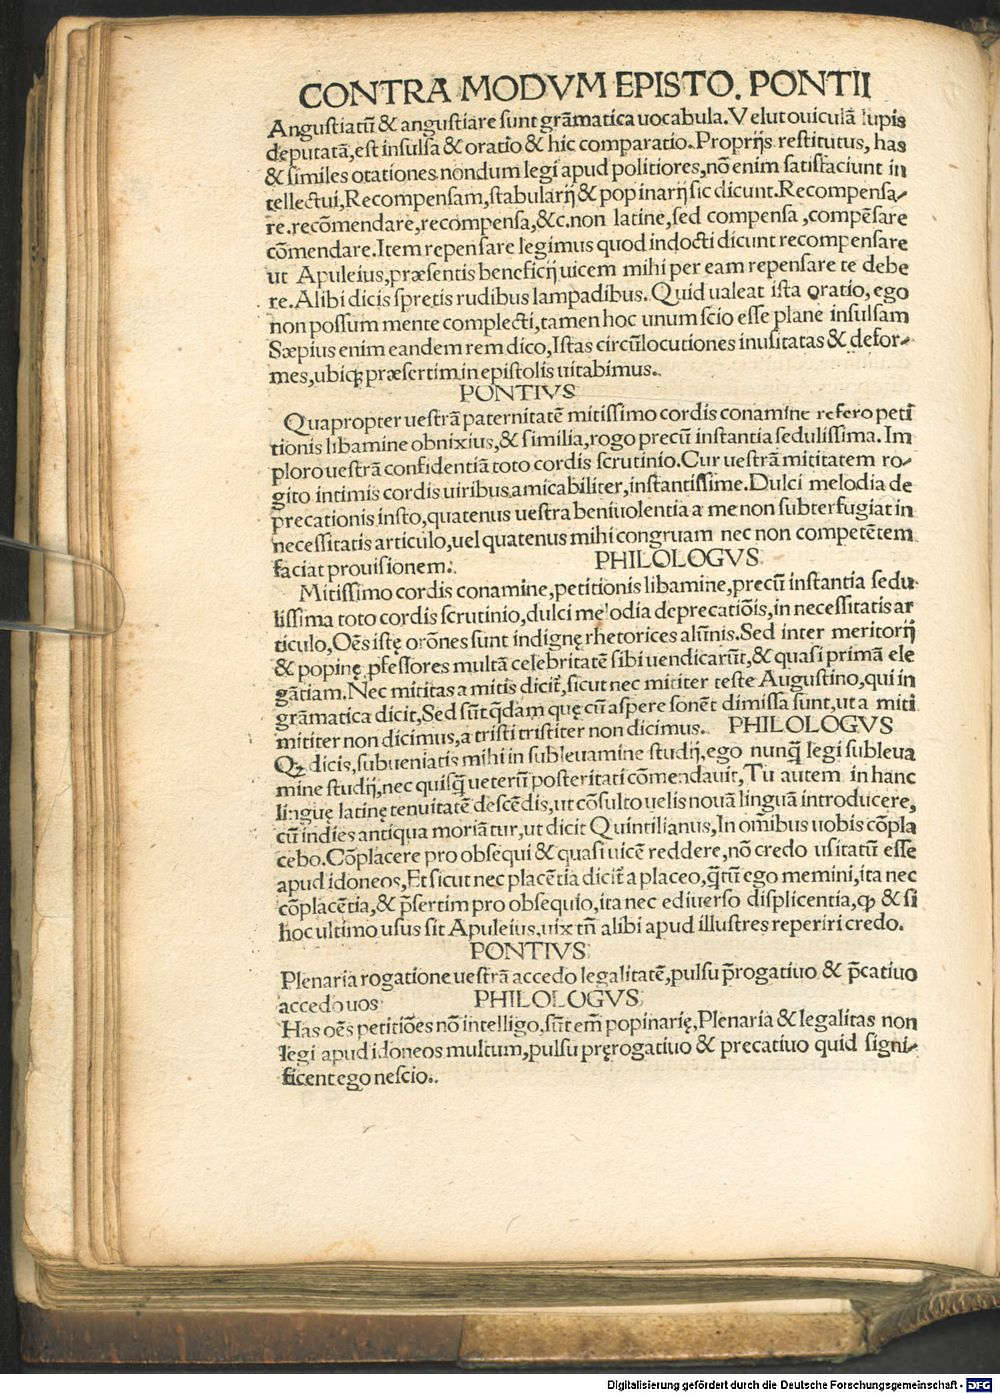 CONTRA MODVM EPISTO. PONTII
Angustiatū & angustiare sunt grāmatica uocabula. Velut ouiculā lupis
deputatā, est insulsa & oratio & hic comparatio. Proprijs restitutus, has
& similes orationes nondum legi apud politiores, nō enim satisfaciunt in
tellectui, Recompensam, stabularij & popinarij sic dicunt. Recompensa-
re. recōmendare, recompensa, &c. non latine, sed compensa, compēsare
cōmendare. Item repensare legimus quod indocti dicunt recompensare
ut Apuleius, præsentis beneficij uicem mihi per eam repensare te debe
re. Alibi dicis spretis rudibus lampadibus. Quid ualeat ista oratio, ego
non possum mente complecti, tamen hoc unum scio esse plane insulsam
Sæpius enim eandem rem dico, Istas circūlocutiones inusitatas & defor-
mes, ubiqꝫ præsertim in epistolis uitabimus.
PONTIVS
Quapropter uestrā paternitatē mitissimo cordis conamine refero peti
tionis libamine obnixius, & similia, rogo precū instantia sedulissima. Im
ploro uestrā confidentiā toto cordis scrutinio. Cur uestrā mititatem ro-
gito intimis cordis uiribus, amicabiliter, instantissime. Dulci melodia de
precationis insto, quatenus uestra beniuolentia a me non subterfugiat in
necessitatis articulo, uel quatenus mihi congruam nec non competētem
faciat prouisionem. PHILOLOGVS
Mitissimo cordis conamine, petitionis libamine, precū instantia sedu
lissima toto cordis scrutinio, dulci melodia deprecatiōis, in necessitatis ar
ticulo, Oēs istę orōnes sunt indignę rhetorices alūnis. Sed inter meritorij
& popinę ꝓfessores multā celebritatē sibi uendicarūt, & quasi primā ele
gātiam. Nec mititas a mitis dicit̃, sicut nec mititer teste Augustino, qui in
grāmatica dicit, Sed sūt q̄dam quę cū aspere sonēt dimissa sunt, ut a miti
mititer non dicimus, a tristi tristiter non dicimus. PHILOLOGVS
Qꝫ dicis, subueniatis mihi in subleuamine studij, ego nunq̄ legi subleua
mine studij, nec quisq̄ ueterū posteritati cōmendauit, Tu autem in hanc
linguę latinę tenuitatē descēdis, ut cōsulto uelis nouā linguā introducere,
cū indies antiqua moriātur, ut dicit Quintilianus, In om̄ibus uobis cōpla
cebo. Cōplacere pro obsequi & quasi uicē reddere, nō credo usitatū esse
apud idoneos, Et sicut nec placētia dicit̃ a placeo, q̄tū ego memini, ita nec
cōplacētia, & p̄sertim pro obsequio, ita nec ediuerso displicentia, ꝙ & si
hoc ultimo usus sit Apuleius, uix tn̄ alibi apud illustres reperiri credo.
PONTIVS
Plenaria rogatione uestrā accedo legalitatē, pulsu p̄rogatiuo & p̄catiuo
accedo uos PHILOLOGVS
Has oēs petitiōes nō intelligo, sūt em̄ popinarię, Plenaria & legalitas non
legi apud idoneos multum, pulsu pręrogatiuo & precatiuo quid signi-
ficent ego nescio.
Digitalisierung gefördert durch die Deutsche Forschungsgemeinschaft - DFG